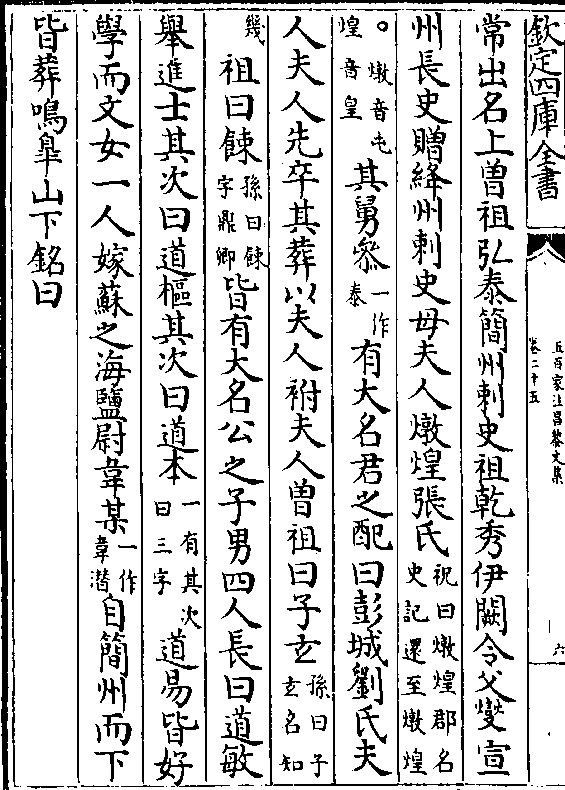 欽定四庫全書
五百家注昌黎文集
卷二十五
六
常出名上曾祖弘泰簡州刺史祖乾秀伊闕令父爕宣
州長史贈絳州刺史母夫人燉煌張氏祝曰燉煌郡名史記還至燉煌
。燉音屯煌音皇其舅參一作泰有大名君之配曰彭城劉氏夫
人夫人先卒其葬以夫人祔夫人曾祖曰子玄孫曰子玄名知
幾祖曰餗孫曰餗字鼎卿皆有大名公之子男四人長曰道敏
舉進士其次曰道樞其次曰道本一有其次曰三字道易皆好
學而文女一人嫁蘇之海鹽尉韋某一作韋潛自簡州而下
皆葬鳴臯山下銘曰